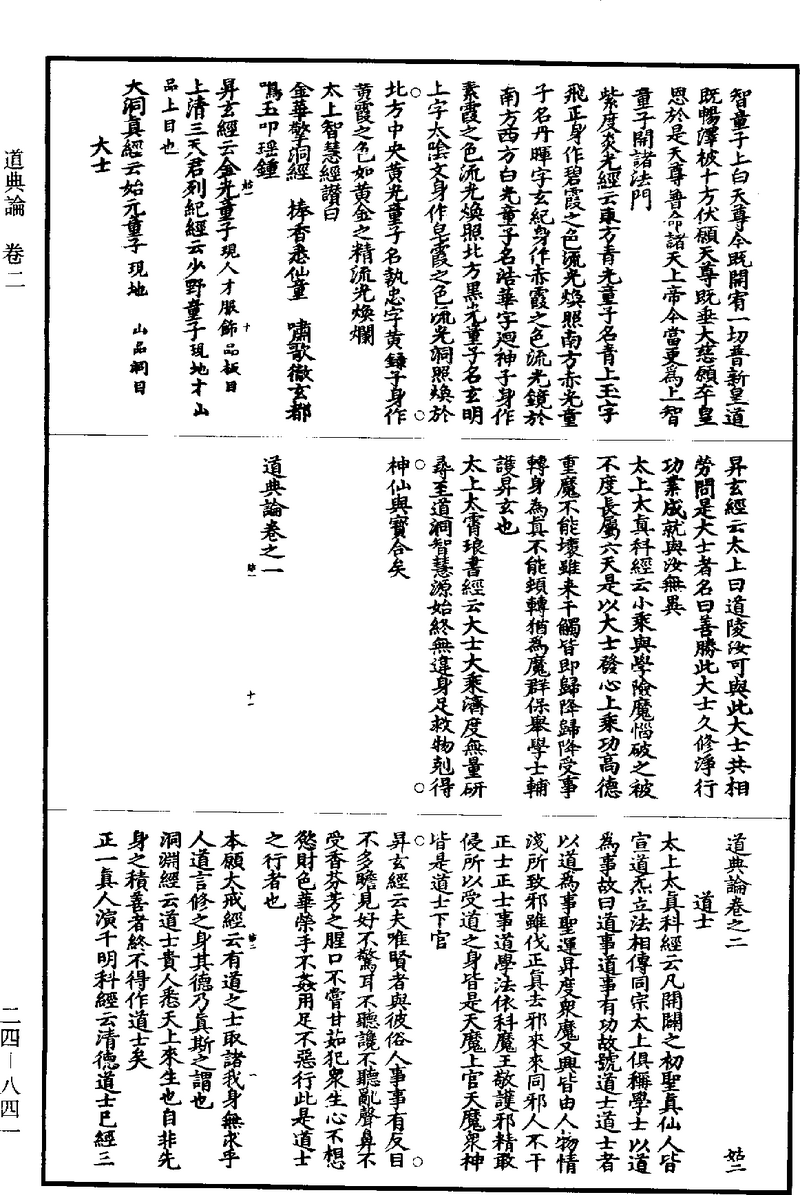 智童子上白天尊今既開宥一切普新皇道
既暢澤被十方伏願天尊既垂大慈願卒皇
恩於是天尊普命諸天上帝今當更為上智
童子開諸法門
紫度炎光經云東方青光童子名青上王字
飛正身作碧霞之色流光煥照南方赤光童
子名丹暉字玄紀身作赤霞之色流光鏡於
南方西方白光童子名浩華字迴神子身作
素霞之色流光煥照北方黑光童子名玄明
上字太陰文身作皂霞之色流光洞照煥於
北方中央黄光童子名執忠字黄錄子身作
黄霞之色如黄金之精流光煥爛
太上智慧經讚曰
金華擎洞經 捧香悉仙童 嘯歌徹玄都
鳴玉叩瓊鐘
昇玄經云金光童子現人才服飾品板目
上清三天君列紀經云少野童子現地才山
品上目也
大洞真經云始元童子現地 山品洞目
大士
昇玄經云太上曰道陵汝可與此大士共相
勞問是大士者名曰善勝此大士久修淨行
功業成就與汝無異
太上太真科經云小乘與學險魔惱破之被
不度長屬六天是以大士發心上乘功高德
重魔不能壞雖来干觸皆即歸降歸降受事
轉身為真不能頓轉猶為魔群保舉學士輔
護昇玄也
太上太霄琅書經云大士大乘濟度無量研
尋至道洞智慧源始終無違身足救物剋得
神仙與實合矣
道典論卷之一
道典論卷之二 姑二
道士
太上太真科經云凡開闢之初聖真仙人皆
宣道炁立法相傳同宗太上俱稱學士以道
為事故曰道事道事有功故號道士道士者
以道為事聖運昇度衆魔又興皆由人物情
淺所致邪雖伐正真去邪來來同邪人不干
正士正士事道學法依科魔王敬護邪精敢
侵所以受道之身皆是天魔上官天魔衆神
皆是道士下官
昇玄經云夫唯賢者與彼俗人事事有反目
不多瞻見好不驚耳不聽讒不聽亂聲鼻不
受香芬芳之腥口不嘗甘茹犯衆生心不想
慾財色華榮手不姦用足不惡行此是道士
之行者也
本願大戒經云有道之士取諸我身無求乎
人道言修之身其德乃真斯之謂也
洞淵經云道士貴人悉天上來生也自非先
身之積善者終不得作道士矣
正一真人演千明科經云清德道士已經三
道典論 卷二
二四—八四一